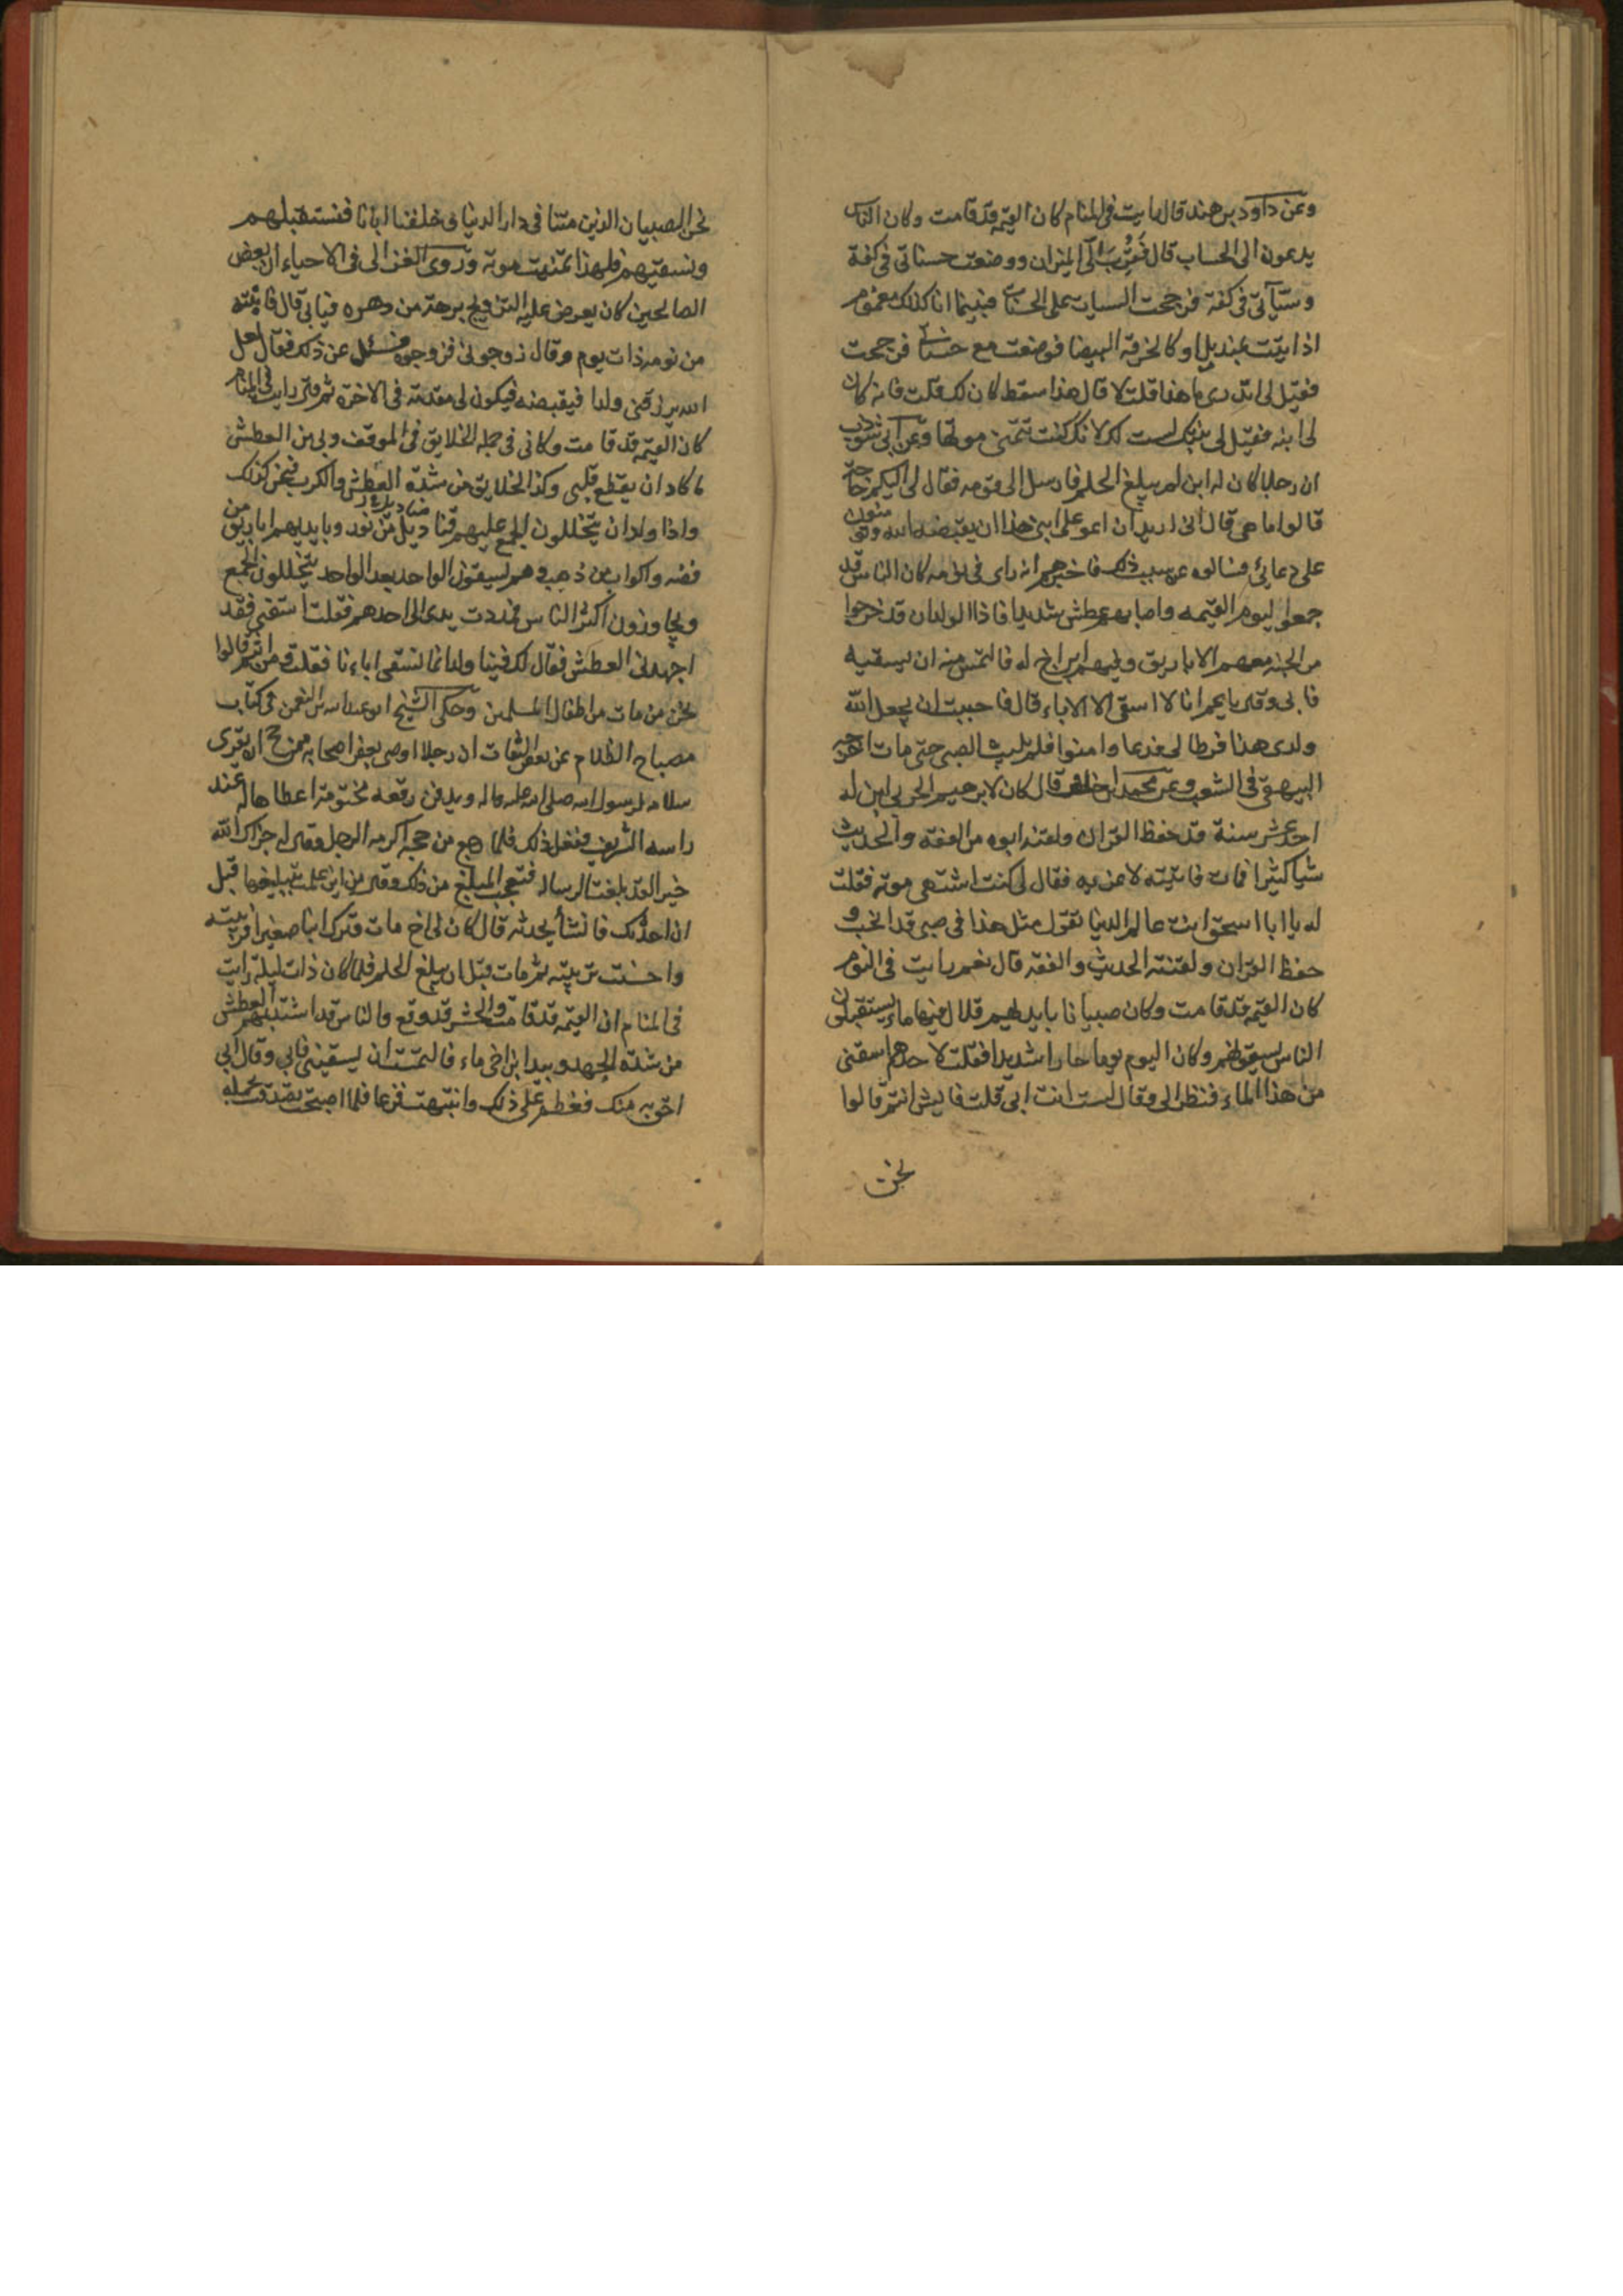 وعن داود بن هند قال رايت في المنام كان القيمه قد قامت وكان الناس
يدعون الى الحساب قال فقربت الى الميزان ووضعت حسناتي في كفة
وسيأتي في كفة فرجحت السيات على الحسنات فبينما انا كذلك مغموم
اذ اتيت بمنديل او كالخرقة البيضا فوضعت مع حسناتي فرجحت
فقيل لي اتدري ما هذا قلت لا قال هذا سقط كان لك قلت فانه كان
لي ابنه فقيل لي بنتك ليست لك لانك كنت تتمنى موتها وعن ابي شوذب
ان رجلا كان له ابن لم يبلغ الحلم فارسل الى قومه فقال لي اليكم حاجة
قالوا ما هي قال اني اريد ان ادعو على ابني هذا ان يقبضه الله وتؤمنون
على دعائي فسالوه عن سبب ذلك فاخبرهم انه راى في نومه كان الناس قد
جمعوا ليوم القيمه واصابهم عطش شديد فاذا الولدان قد خرجوا
من الجنه معهم الاباريق وفيهم ابن اخ له فالتمس منه ان يسقيه
فابى وقال يا عم انا لا اسقي الا الاباء قال فاحببت ان يجعل الله
ولدي هذا فرطا لي فدعا وامنوا فلم يلبث الصبي حتى مات اخرجه
البيهقي في الشعب وعن محمد ابن خلف قال كان لابرهيم الحربي ابن له
احد عشر سنة قد حفظ القران ولقنه ابوه من الفقه والحديث
شيا كثيرا فمات فاتيته لاعزيه فقال لي كنت اشتهي موته فقلت
له يا ابا اسحق انت عالم الدنيا تقول مثل هذا في صبي قد انجب و
حفظ القران ولقنته الحديث والفقه قال نعم رايت في النوم
كان القيمه قد قامت وكان صبيانا بايديهم قلال فيها ماء يستقبلون
الناس يسقونهم وكان اليوم يوما حارا شديدا فقلت لاحدهم اسقني
من هذا الماء فنظر الي وقال لست انت ابي قلت فايش انتم قالوا
نحن
نحن الصبيان الذين متنا في دار الدنيا وخلفنا ابانا فنستقبلهم
ونسقيهم فلهذا تمنيت موته وروى الغزالي في الاحياء ان بعض
الصالحين كان يعرض عليه التزويج برهة من دهره فيابى قال فانتبه
من نومه ذات يوم وقال زوجوني فزوجوه فسئل عن ذلك فقال لعل
الله يرزقني ولدا فيقبضه فيكون لي مقدمة في الاخرة ثم قال رايت في المنام
كان القيمه قد قامت وكاني في جمله الخلايق في الموقف وبي من العطش
ما كاد ان يقطع قلبي وكذا الخلايق من شدة العطش والكرب فنحن كذلك
واذا ولدان يتخللون الجمع عليهم مناديل من نور وبايديهم اباريق من
فضه واكواب من ذهب وهم يسقون الواحد بعد الواحد يتخللون الجمع
ويجاوزون اكثر الناس فمددت يدي الى احدهم فقلت اسقني فقد
اجهدني العطش فقال لك فينا ولد انما نسقي اباءنا فقلت ومن انتم قالوا
نحن من مات من اطفال المسلمين وحكى الشيخ ابو عبد الله بن النعمن في كتاب
مصباح الظلام عن بعض الثقات ان رجلا اوصى بعض اصحابه ممن حج ان يقرى
سلامه لرسول الله صلى الله عليه واله ويدفن رقعه مختومة اعطاها له عند
راسه الشريف ففعل ذلك فلما رجع من حجه اكرمه الرجل وقال له جزاك الله
خيرا لقد بلغت الرساله فتعجب المبلغ من ذلك وقال من اين علمت بتبليغها قبل
ان احدثك فانشأ يحدثه قال كان لي اخ مات وترك ابنا صغيرا فربيته
واحسنت تربيته ثم مات قبل ان يبلغ الحلم فلما كان ذات ليلة رايت
في المنام ان القيمه قد قامت والحشر قد وقع والناس قد اشتد بهم العطش
من شدة الجهد وبيد ابن اخي ماء فالتمست ان يسقيني فابى وقال ابي
احق به منك فعظم علي ذلك وانتبهت فزعا فلما اصبحت تصدقت بجمله